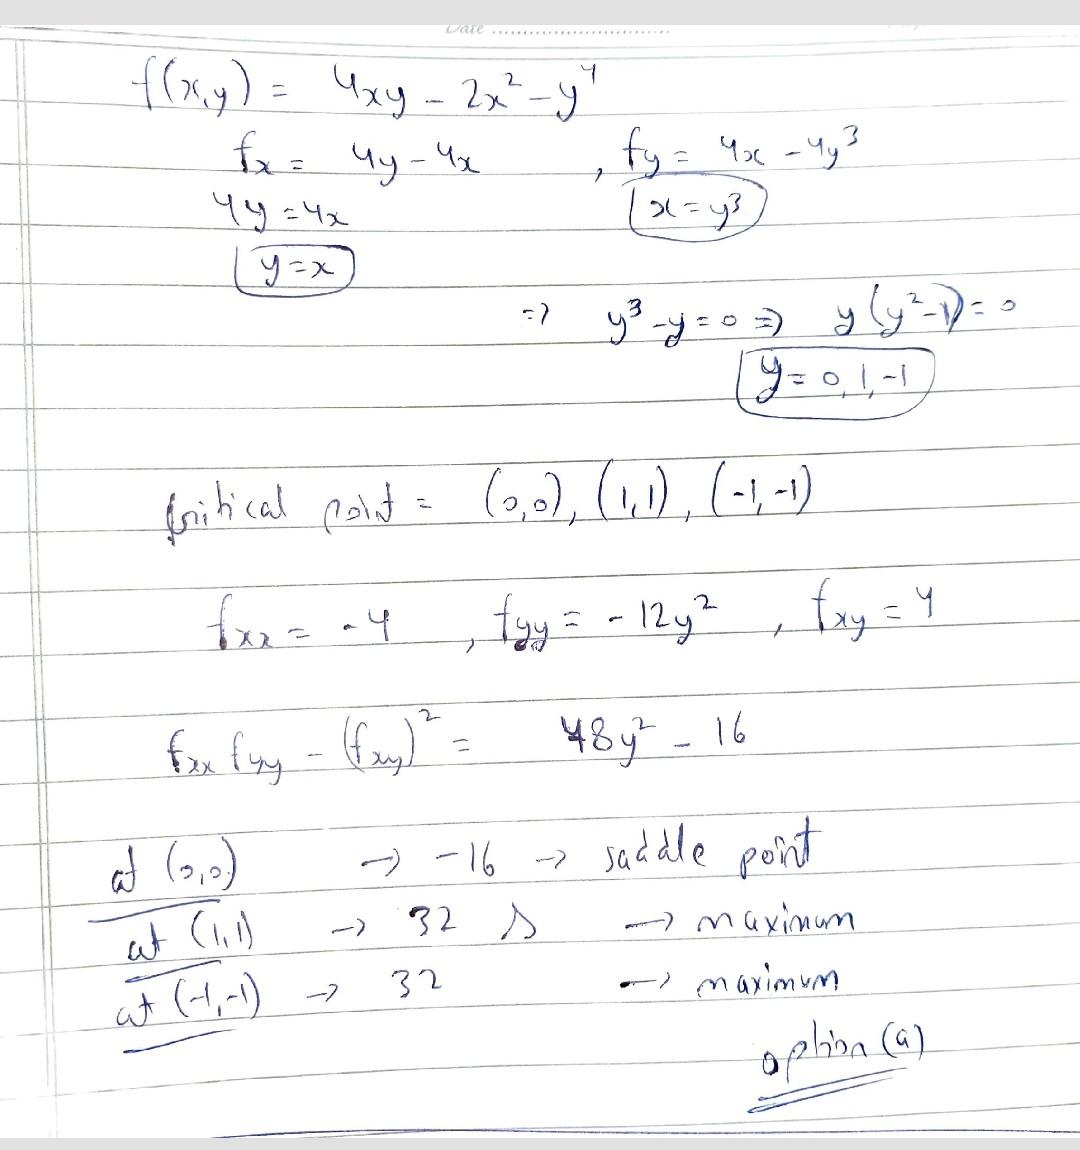 Date
f(x,y) = 4xy - 2x² - y⁴
fx = 4y - 4x , fy = 4x - 4y³
4y = 4x x = y³
y = x
=> y³ - y = 0 => y(y² - 1) = 0
y = 0, 1, -1
Critical point = (0,0), (1,1), (-1,-1)
fxx = -4 , fyy = -12y² , fxy = 4
fxx fyy - (fxy)² = 48y² - 16
at (0,0) → -16 → saddle point
at (1,1) → 32 → maximum
at (-1,-1) → 32 → maximum
option (a)